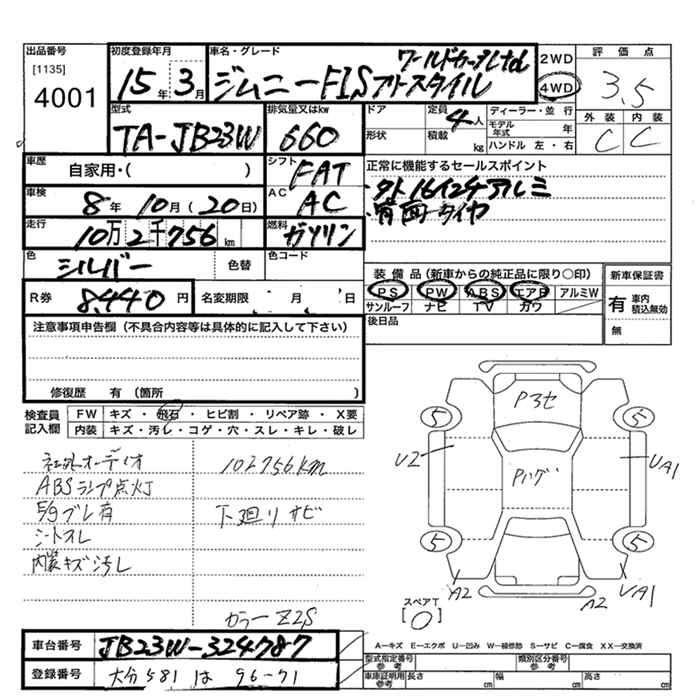 出品番号
[1135]
4001
初度登録年月
15年 3月
車名・グレード
ワールドカップLtd
ジムニーFISフリースタイル
2WD
4WD
評価点
3.5
外装 内装
C C
型式
TA-JB23W
排気量又はkw
660
ドア
形状
定員 4人
積載 kg
ディーラー・並行
モデル年式 年
ハンドル 左・右
車歴
自家用・( )
シフト
FAT
正常に機能するセールスポイント
・タト16インチアルミ
・背面タイヤ
車検
8年 10月(20日)
AC
AC
走行
10万2千756km
燃料
ガソリン
色
シルバー
色替
色コード
装備品(新車からの純正品に限り○印)
PS PW ABS エアB アルミW
サンルーフ ナビ TV カワ
新車保証書
有 車内積込無効
無
R券
8,440円
名変期限 月 日
後日品
注意事項申告欄(不具合内容等は具体的に記入して下さい)
修復歴 有(箇所 )
検査員記入欄
FW キズ・飛石・ヒビ割・リペア跡・X要
内装 キズ・汚レ・コゲ・穴・スレ・キレ・破レ
社外オーディオ
102756km
ABSランプ点灯
E/gブレ有
下廻りサビ
シートスレ
内装キズ汚レ
カラーZ2S
Pヨセ
5 5
U2
UA1
Pハゲ
5 5
A2
A2
UA1
スペアT
[0]
車台番号
JB23W-324787
登録番号
大分581は96-71
A―キズ E―エクボ U―凹み W―補修跡 S―サビ C―腐食 XX―交換済
型式指定番号 参考
類別区分番号 参考
車庫証明用 参考
長さ cm 幅 cm 高さ cm